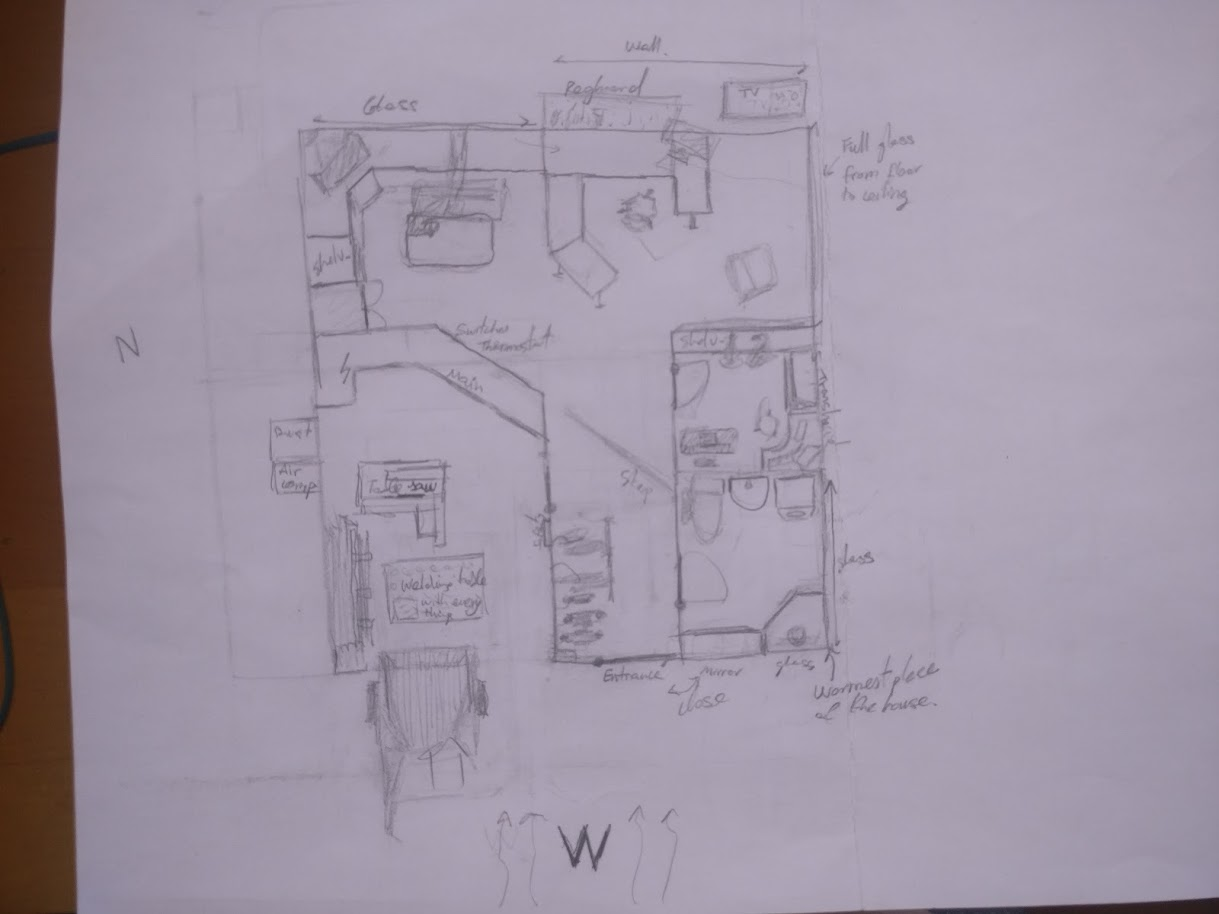 wall.
Pegboard
TV
Glass
Full glass
from floor
to ceiling
N
Shelv-
Switches
Thermostat
Main
Shelv-
Dust
Air
comp
Table saw
Step
Welding table
with every
thing
glass
Entrance
Mirror
glass
close
Warmest place
of the house.
W